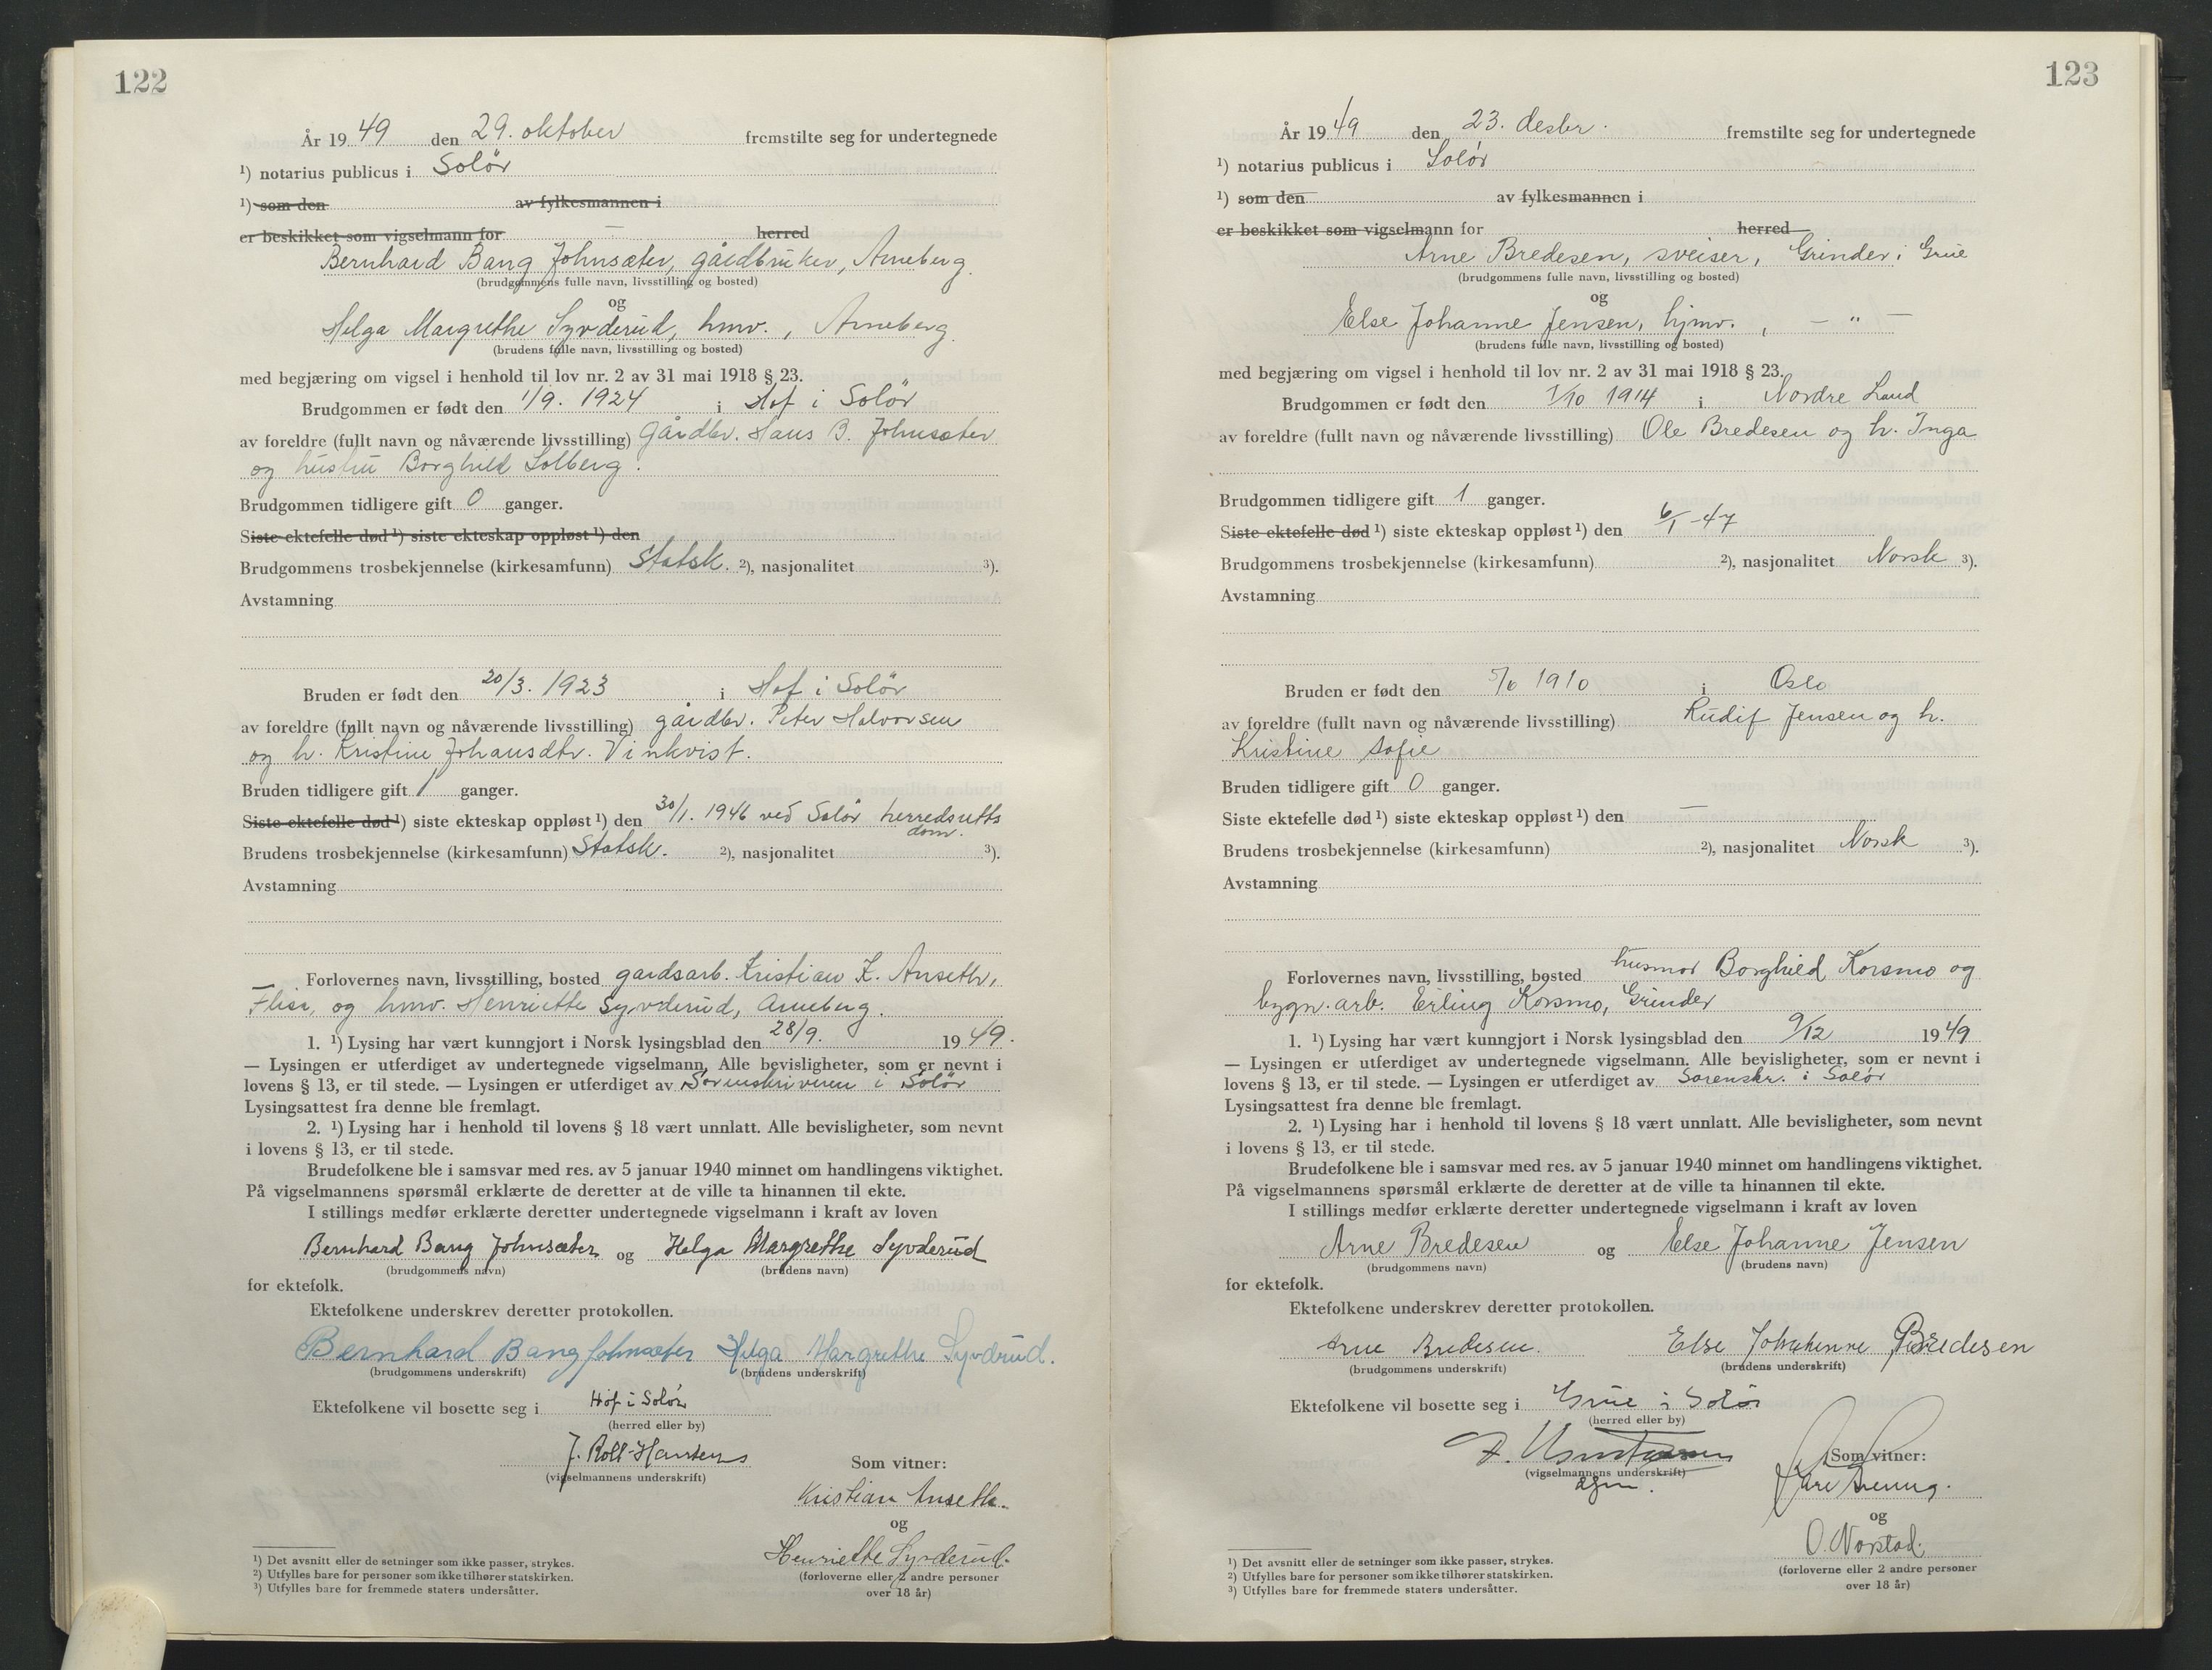 122
År 19 49 den 29. oktober fremstilte seg for undertegnede
¹) notarius publicus i Solør
¹) som den av fylkesmannen i
er beskikket som vigselmann for — herred
Bernhard Bang Johnsæter, gårdbruker, Arneberg.
(brudgommens fulle navn, livsstilling og bosted)
og
Helga Margrethe Syvderud, hmv., Arneberg.
(brudens fulle navn, livsstilling og bosted)
med begjæring om vigsel i henhold til lov nr. 2 av 31 mai 1918 § 23.
Brudgommen er født den 1/9. 1924 i Hof i Solør
av foreldre (fullt navn og nåværende livsstilling) Gårdbr. Hans B. Johnsæter
og hustru Borghild Solberg.
Brudgommen tidligere gift 0 ganger.
Siste ektefelle død ¹) siste ekteskap oppløst ¹) den
Brudgommens trosbekjennelse (kirkesamfunn) Statsk. ²), nasjonalitet ³).
Avstamning
Bruden er født den 20/3. 1923 i Hof i Solør
av foreldre (fullt navn og nåværende livsstilling) gårdbr. Peter Halvorsen
og h. Kristine Johansdtr. Vinkvist.
Bruden tidligere gift 1 ganger.
Siste ektefelle død ¹) siste ekteskap oppløst ¹) den 30/1. 1946 ved Solør herredsretts
dom.
Brudens trosbekjennelse (kirkesamfunn) Statsk. ²), nasjonalitet ³).
Avstamning
Forlovernes navn, livsstilling, bosted gardsarb. Kristian K. Anseth,
Flisa, og hmv. Henriette Syvderud, Arneberg.
1. ¹) Lysing har vært kunngjort i Norsk lysingsblad den 28/9. 19 49.
— Lysingen er utferdiget av undertegnede vigselmann. Alle bevisligheter, som er nevnt i
lovens § 13, er til stede. — Lysingen er utferdiget av Sorenskriveren i Solør
Lysingsattest fra denne ble fremlagt.
2. ¹) Lysing har i henhold til lovens § 18 vært unnlatt. Alle bevisligheter, som nevnt
i lovens § 13, er til stede.
Brudefolkene ble i samsvar med res. av 5 januar 1940 minnet om handlingens viktighet.
På vigselmannens spørsmål erklærte de deretter at de ville ta hinannen til ekte.
I stillings medfør erklærte deretter undertegnede vigselmann i kraft av loven
Bernhard Bang Johnsæter og Helga Margrethe Syvderud
(brudgommens navn) (brudens navn)
for ektefolk.
Ektefolkene underskrev deretter protokollen.
Bernhard Bang Johnsæter Helga Margrethe Syvdrud.
(brudgommens underskrift) (brudens underskrift)
Ektefolkene vil bosette seg i Hof i Solør
(herred eller by)
J. Roll-Hansen
(vigselmannens underskrift)
Som vitner:
Kristian Anseth.
og
Henriette Syvderud.
(forloverne eller 2 andre personer
over 18 år)
¹) Det avsnitt eller de setninger som ikke passer, strykes.
²) Utfylles bare for personer som ikke tilhører statskirken.
³) Utfylles bare for fremmede staters undersåtter.
123
År 19 49 den 23. desbr. fremstilte seg for undertegnede
¹) notarius publicus i Solør
¹) som den av fylkesmannen i
er beskikket som vigselmann for herred
Arne Bredesen, sveiser, Grinder i Grue
(brudgommens fulle navn, livsstilling og bosted)
og
Else Johanne Jensen, hjmv., — " —
(brudens fulle navn, livsstilling og bosted)
med begjæring om vigsel i henhold til lov nr. 2 av 31 mai 1918 § 23.
Brudgommen er født den 1/10 1914 i Nordre Land
av foreldre (fullt navn og nåværende livsstilling) Ole Bredesen og h. Inga
Brudgommen tidligere gift 1 ganger.
Siste ektefelle død ¹) siste ekteskap oppløst ¹) den 6/1 -47
Brudgommens trosbekjennelse (kirkesamfunn) ²), nasjonalitet Norsk ³).
Avstamning
Bruden er født den 5/6 1910 i Oslo
av foreldre (fullt navn og nåværende livsstilling) Rudif Jensen og h.
Kristine Sofie
Bruden tidligere gift 0 ganger.
Siste ektefelle død ¹) siste ekteskap oppløst ¹) den —
Brudens trosbekjennelse (kirkesamfunn) ²), nasjonalitet Norsk ³).
Avstamning
Forlovernes navn, livsstilling, bosted husmor Borghild Korsmo og
bygn.arb. Erling Korsmo, Grinder
1. ¹) Lysing har vært kunngjort i Norsk lysingsblad den 9/12 19 49
— Lysingen er utferdiget av undertegnede vigselmann. Alle bevisligheter, som er nevnt i
lovens § 13, er til stede. — Lysingen er utferdiget av Sorenskr. i Solør
Lysingsattest fra denne ble fremlagt.
2. ¹) Lysing har i henhold til lovens § 18 vært unnlatt. Alle bevisligheter, som nevnt
i lovens § 13, er til stede.
Brudefolkene ble i samsvar med res. av 5 januar 1940 minnet om handlingens viktighet.
På vigselmannens spørsmål erklærte de deretter at de ville ta hinannen til ekte.
I stillings medfør erklærte deretter undertegnede vigselmann i kraft av loven
Arne Bredesen og Else Johanne Jensen
(brudgommens navn) (brudens navn)
for ektefolk.
Ektefolkene underskrev deretter protokollen.
Arne Bredesen. Else Johanne Bredesen
(brudgommens underskrift) (brudens underskrift)
Ektefolkene vil bosette seg i Grue i Solør
(herred eller by)
(vigselmannens underskrift)
Som vitner:
og
O. Norstad.
(forloverne eller 2 andre personer
over 18 år)
¹) Det avsnitt eller de setninger som ikke passer, strykes.
²) Utfylles bare for personer som ikke tilhører statskirken.
³) Utfylles bare for fremmede staters undersåtter.